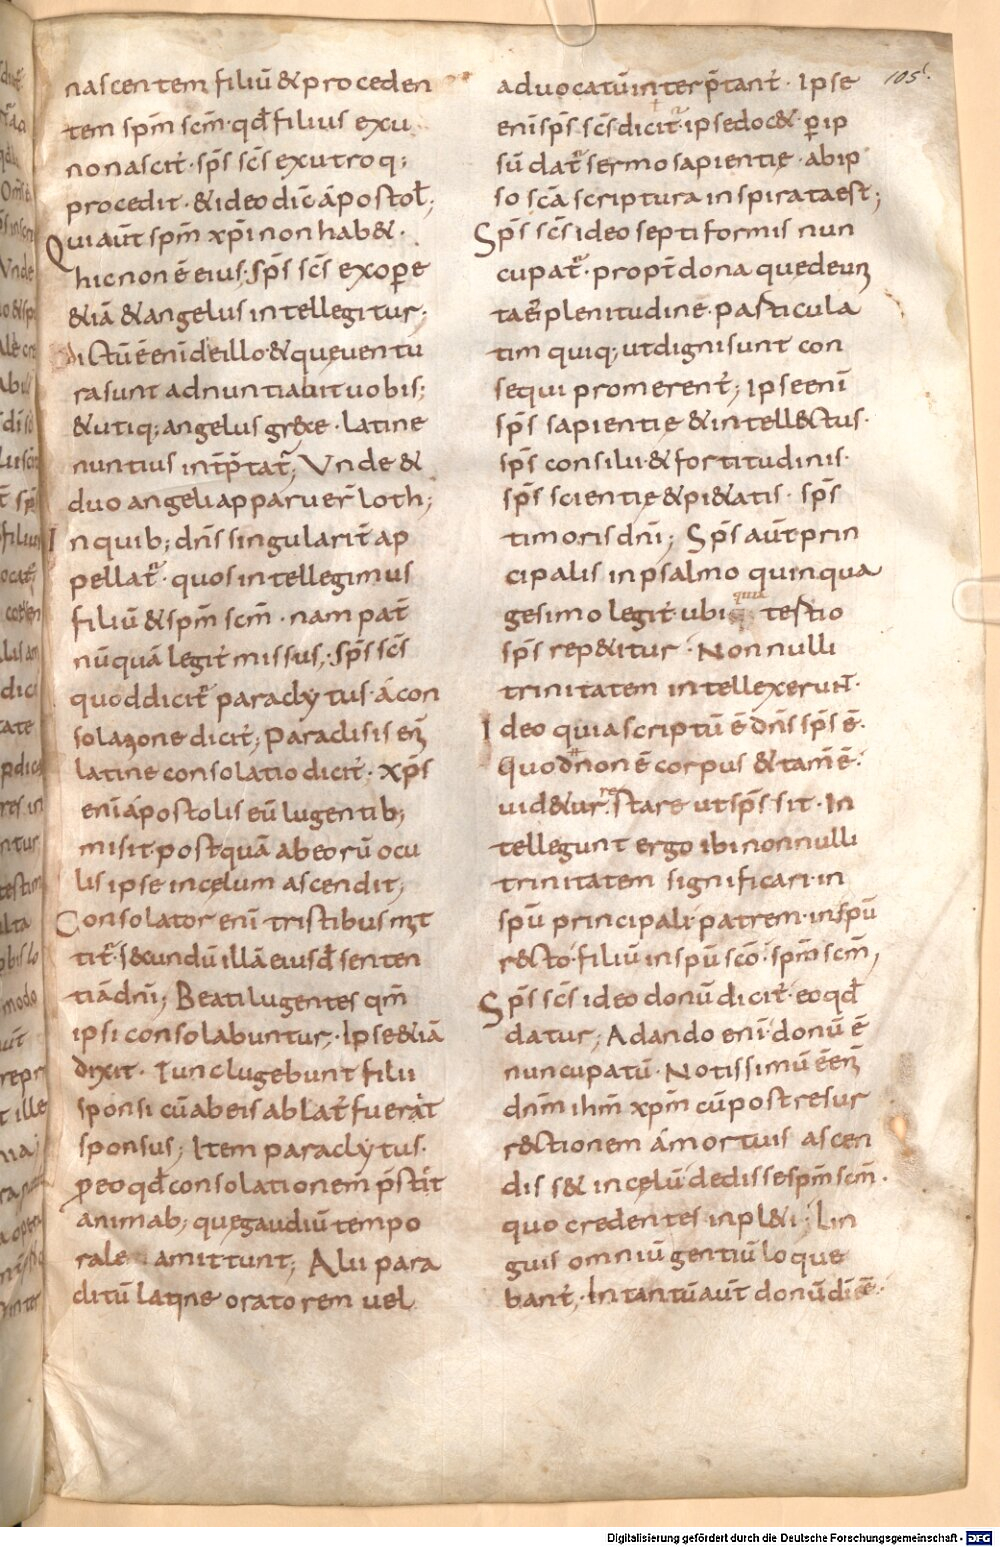 nascentem filiū & proceden
tem spm̄ scm̄· qd̄ filius exu
no nascit̄· sp̄s sc̄s exutroq;
procedit· & ideo dic̄ apostol̄;
Qui aut̄ spm̄ xp̄i non hab&·
hic non ē eius; sp̄s sc̄s exope
& iā & angelus intellegitur·
dictū ē eni de illo· & que uentu
ra sunt adnuntiabit uobis;
& utiq; angelus grece· latine
nuntius int̄p̄tat̄; Vnde &
duo angeli apparuer̄ loth;
In quib; dn̄s singularit̄ ap
pellat̄· quos intellegimus
filiū & spm̄ scm̄· nam pat̄
nūquā legit̄ missus; sp̄s sc̄s
quod dicit̄ paraclytus· a con
solatione dicit̄; Paraclisis eni
latine consolatio dicit̄· xp̄s
eni apostolis eū lugentib;
misit· postquā ab eorū ocu
lis ipse in celum ascendit;
Consolator eni tristibus mit
tit̄· secundū illā eiusd̄ senten
tiā dn̄i; Beati lugentes qm̄
ipsi consolabuntur; Ipse &iā
dixit· Tunc lugebunt filii
sponsi cū ab eis ablat̄ fuerit
sponsus; Item paraclytus·
p eo qd̄ consolationem p̄stit
animab; que gaudiū tempo
rale amittunt; Alii para
clitū latine oratorem uel
aduocatū interp̄tant̄· Ipse
105.
eni sp̄s sc̄s dicit· ipse doc&· p ip
sū dat̄ sermo sapientie· ab ip
so sc̄a scriptura inspirata est;
Sp̄s sc̄s ideo septiformis nun
cupat̄· propt̄ dona que de un
ta ei plenitudine particula
tim quiq; ut digni sunt con
sequi promerent̄; Ipse eni
sp̄s sapientie & intellectus·
sp̄s consilii & fortitudinis·
sp̄s scientie & pi&atis· sp̄s
timoris dn̄i; Sp̄s aut̄ prin
cipalis in psalmo quinqua
gesimo legit̄ ubi quia tertio
sp̄s rep&itur· Nonnulli
trinitatem intellexerunt·
Ideo quia scriptū ē dn̄s sp̄s ē·
Quod non ē corpus & tam̄ ē·
uid&ur restare ut sp̄s sit· In
tellegunt ergo ibi nonnulli
trinitatem significari· in
spū principali patrem· in spū
recto· filiū in spū scō· spm̄ scm̄;
Sp̄s sc̄s ideo donū dicit̄· eo qd̄
datur; A dando eni· donū ē
nuncupatū· Notissimū ē eni
dn̄m ihm̄ xpm̄ cū post resur
rectionem a mortuis ascen
diss& in celū dedisse spm̄ scm̄·
quo credentes inpl&i; Lin
guis omniū gentiū loque
bant̄; In tantū aut̄ donū di ē·